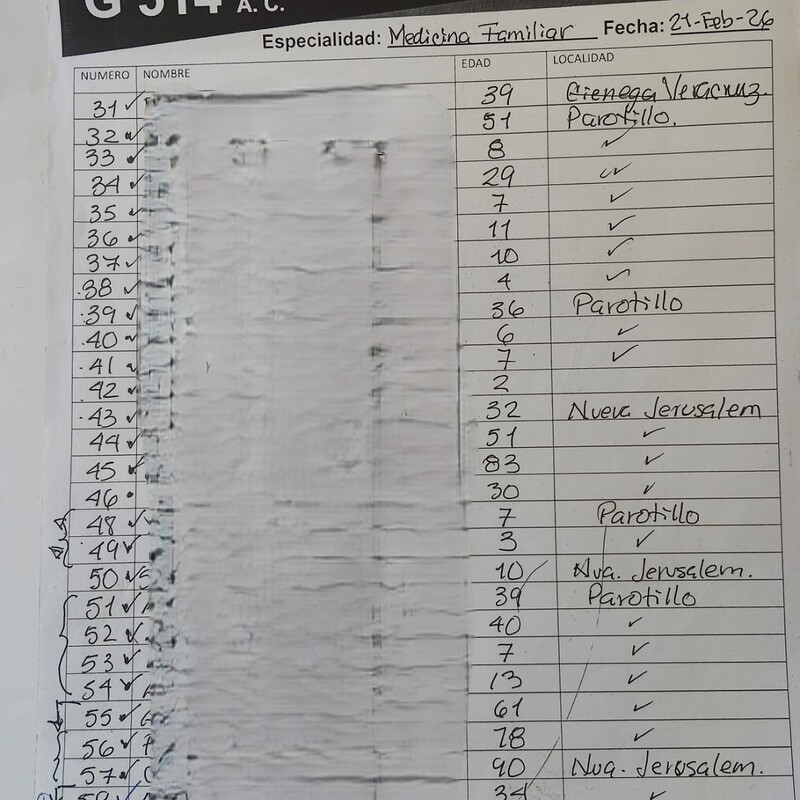 G 514 A. C.
Especialidad: Medicina Familiar Fecha: 21-Feb-26
NUMERO NOMBRE EDAD LOCALIDAD
31 ✓ 39 Cienega Veracruz.
32 ✓ 51 Parotillo.
33 ✓ 8 ✓
34 ✓ 29 ✓
35 ✓ 7 ✓
36 ✓ 11 ✓
37 ✓ 10 ✓
38 ✓ 4 ✓
39 ✓ 36 Parotillo
40 ✓ 6 ✓
41 ✓ 7 ✓
42 ✓ 2
43 ✓ 32 Nueva Jerusalem
44 ✓ 51 ✓
45 ✓ 83 ✓
46 • 30 ✓
48 ✓ 7 Parotillo
49 ✓ 3 ✓
50 ✓ 10 Nva. Jerusalem.
51 ✓ 39 Parotillo
52 ✓ 40 ✓
53 ✓ 7 ✓
54 ✓ 13 ✓
55 ✓ 61 ✓
56 ✓ 78 ✓
57 ✓ 90 Nva. Jerusalem.
34 ✓